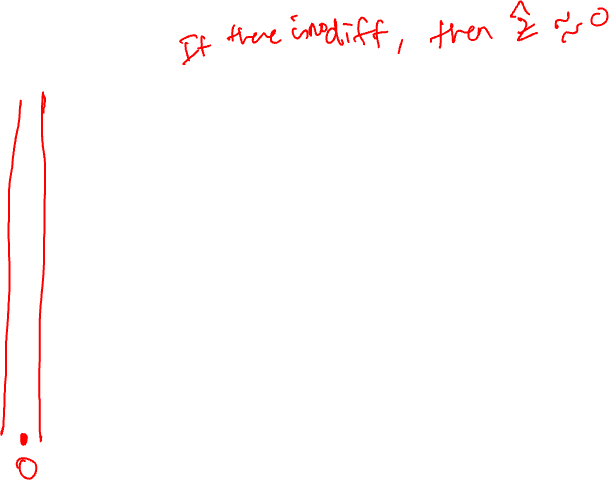 If there is no diff, then ẑ ≈ 0
0